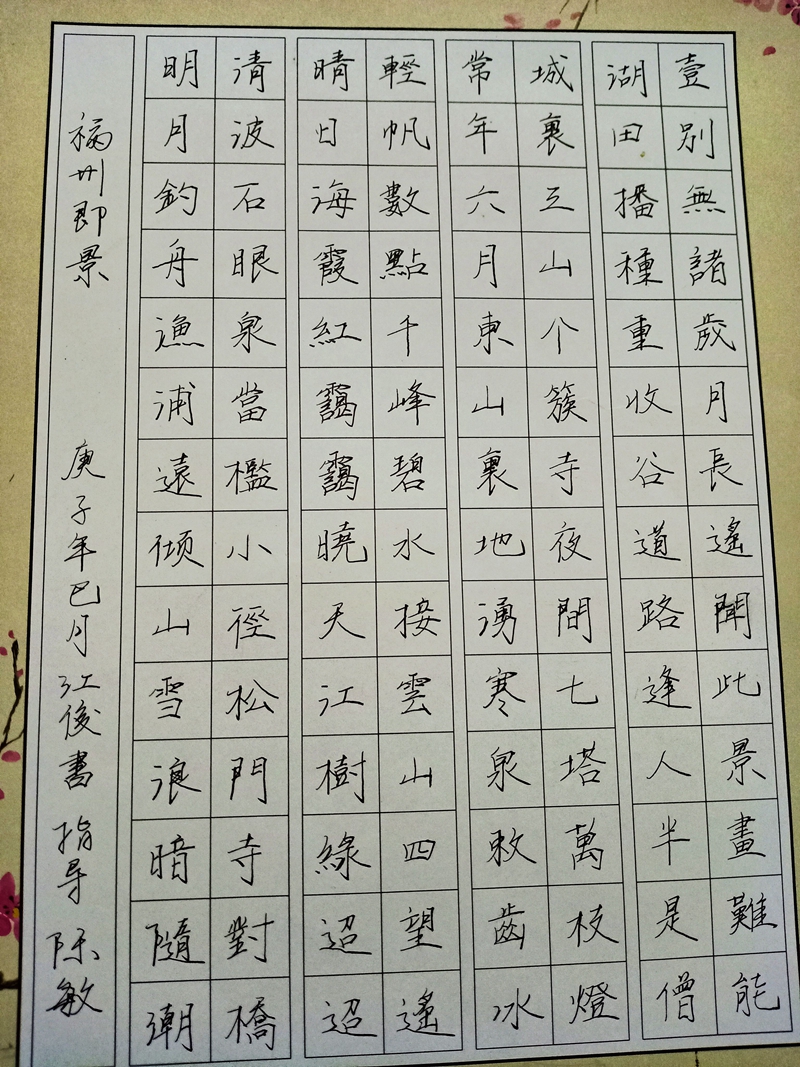 壹別無諸歲月長遙聞此景畫難能
湖田播種重收谷道路逢人半是僧
城裏三山个簇寺夜間七塔萬枝燈
常年六月東山裏地湧寒泉敕齒冰
輕帆數點千峰碧水接雲山四望遙
晴日海霞紅靄靄曉天江樹綠迢迢
清波石眼泉當檻小徑松門寺對橋
明月釣舟漁浦遠倾山雪浪暗隨潮
福州即景 庚子年巳月 江俊書 指导 陈敏